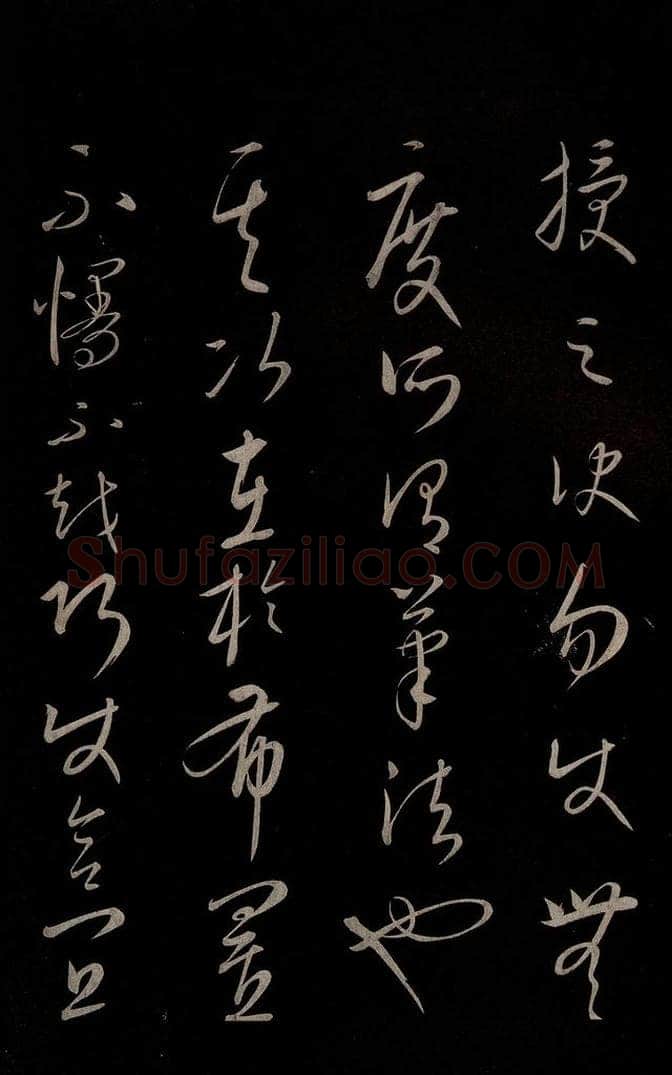 授之訣勿使無
度所謂筆法也
其次在於布置
不慢不越巧使合宜
Shufaziliao.COM